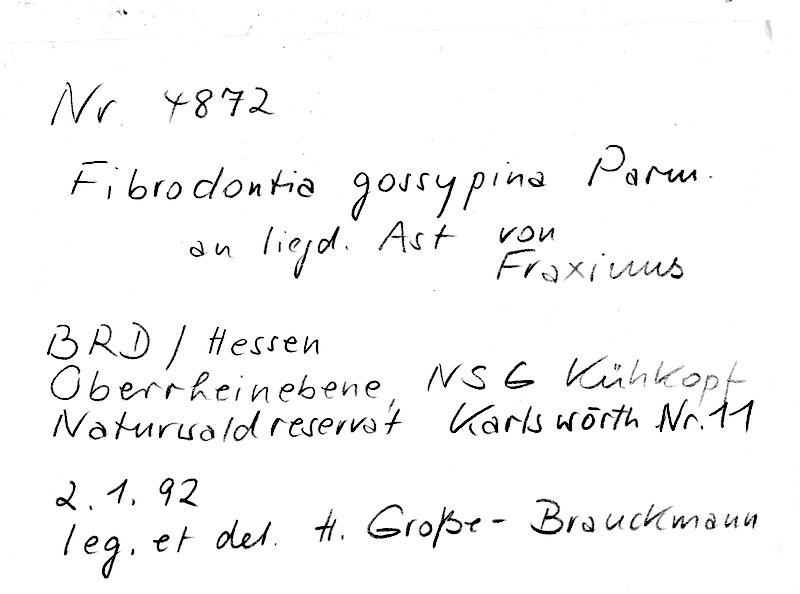 Nr. 4872
Fibrodontia gossypina Parm.
an liegd. Ast von
Fraxinus
BRD / Hessen
Oberrheinebene, NSG Kühkopf
Naturwaldreservat Karlswörth Nr. 11
2.1.92
leg. et det. H. Große-Brauckmann